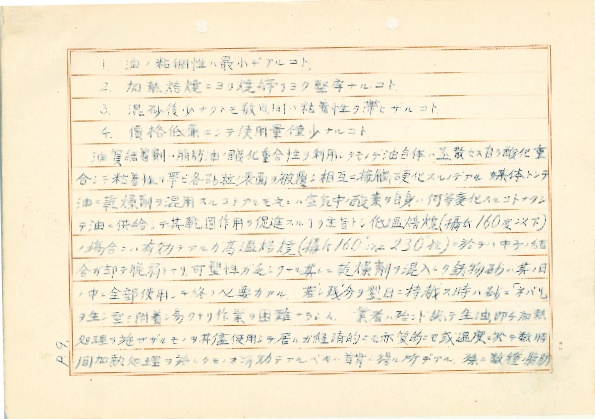 1. 油ノ粘稠性ハ最小デアルコト
2. 加熱焙焼ニヨリ焼締リヨク堅牢ナルコト
3. 混砂後少ナクトモ数日間ハ粘着性ヲ帯ビザルコト
4. 價格低廉ニシテ使用量僅少ナルコト
油質粘着剤ハ脂肪油ノ酸化重合性ヲ利用シタモノデ油自体ハ蒸散セズ自ラ酸化重
合シテ粘着性ヲ帯ビ各砂粒ノ表面ヲ被覆シ相互ニ接触硬化スルノデアル 媒体トシテ
油ニ乾燥剤ヲ混用スルコトアルモ之ハ空気中ノ酸素ヲ自身ハ何等変化スルコトナクシ
テ油ニ供給シテ其乾固作用ヲ促進スルヲ主旨トシ低温焙焼(攝氏160度以下)
ノ場合ニハ有効デアルガ高温焙焼(攝氏160 230 )ニ於テハ中子ノ結
合ガ却テ脆弱トナリ可塑性ガ乏シクナル 其ノ上乾燥剤ヲ混入シタ鋳物砂ハ其ノ日
ノ中ニ全部使用シテ終フ必要ガアル 若シ残分ヲ翌日ニ持越ス時ハ砂ニ「ネバリ」
ヲ生ジ型ニ附着シ易クナリ作業ヲ困難ナラシム 業者ハ殆ンド総テ生油即チ加熱
処理ヲ施サザルモノヲ其儘使用シテ居ルガ経済的ニモ亦質的ニモ或温度ニ於テ数時
間加熱処理ヲ施シタモノガ有効デアルベキハ首肯シ得ル所デアル 殊ニ数種ノ脂肪
P9.